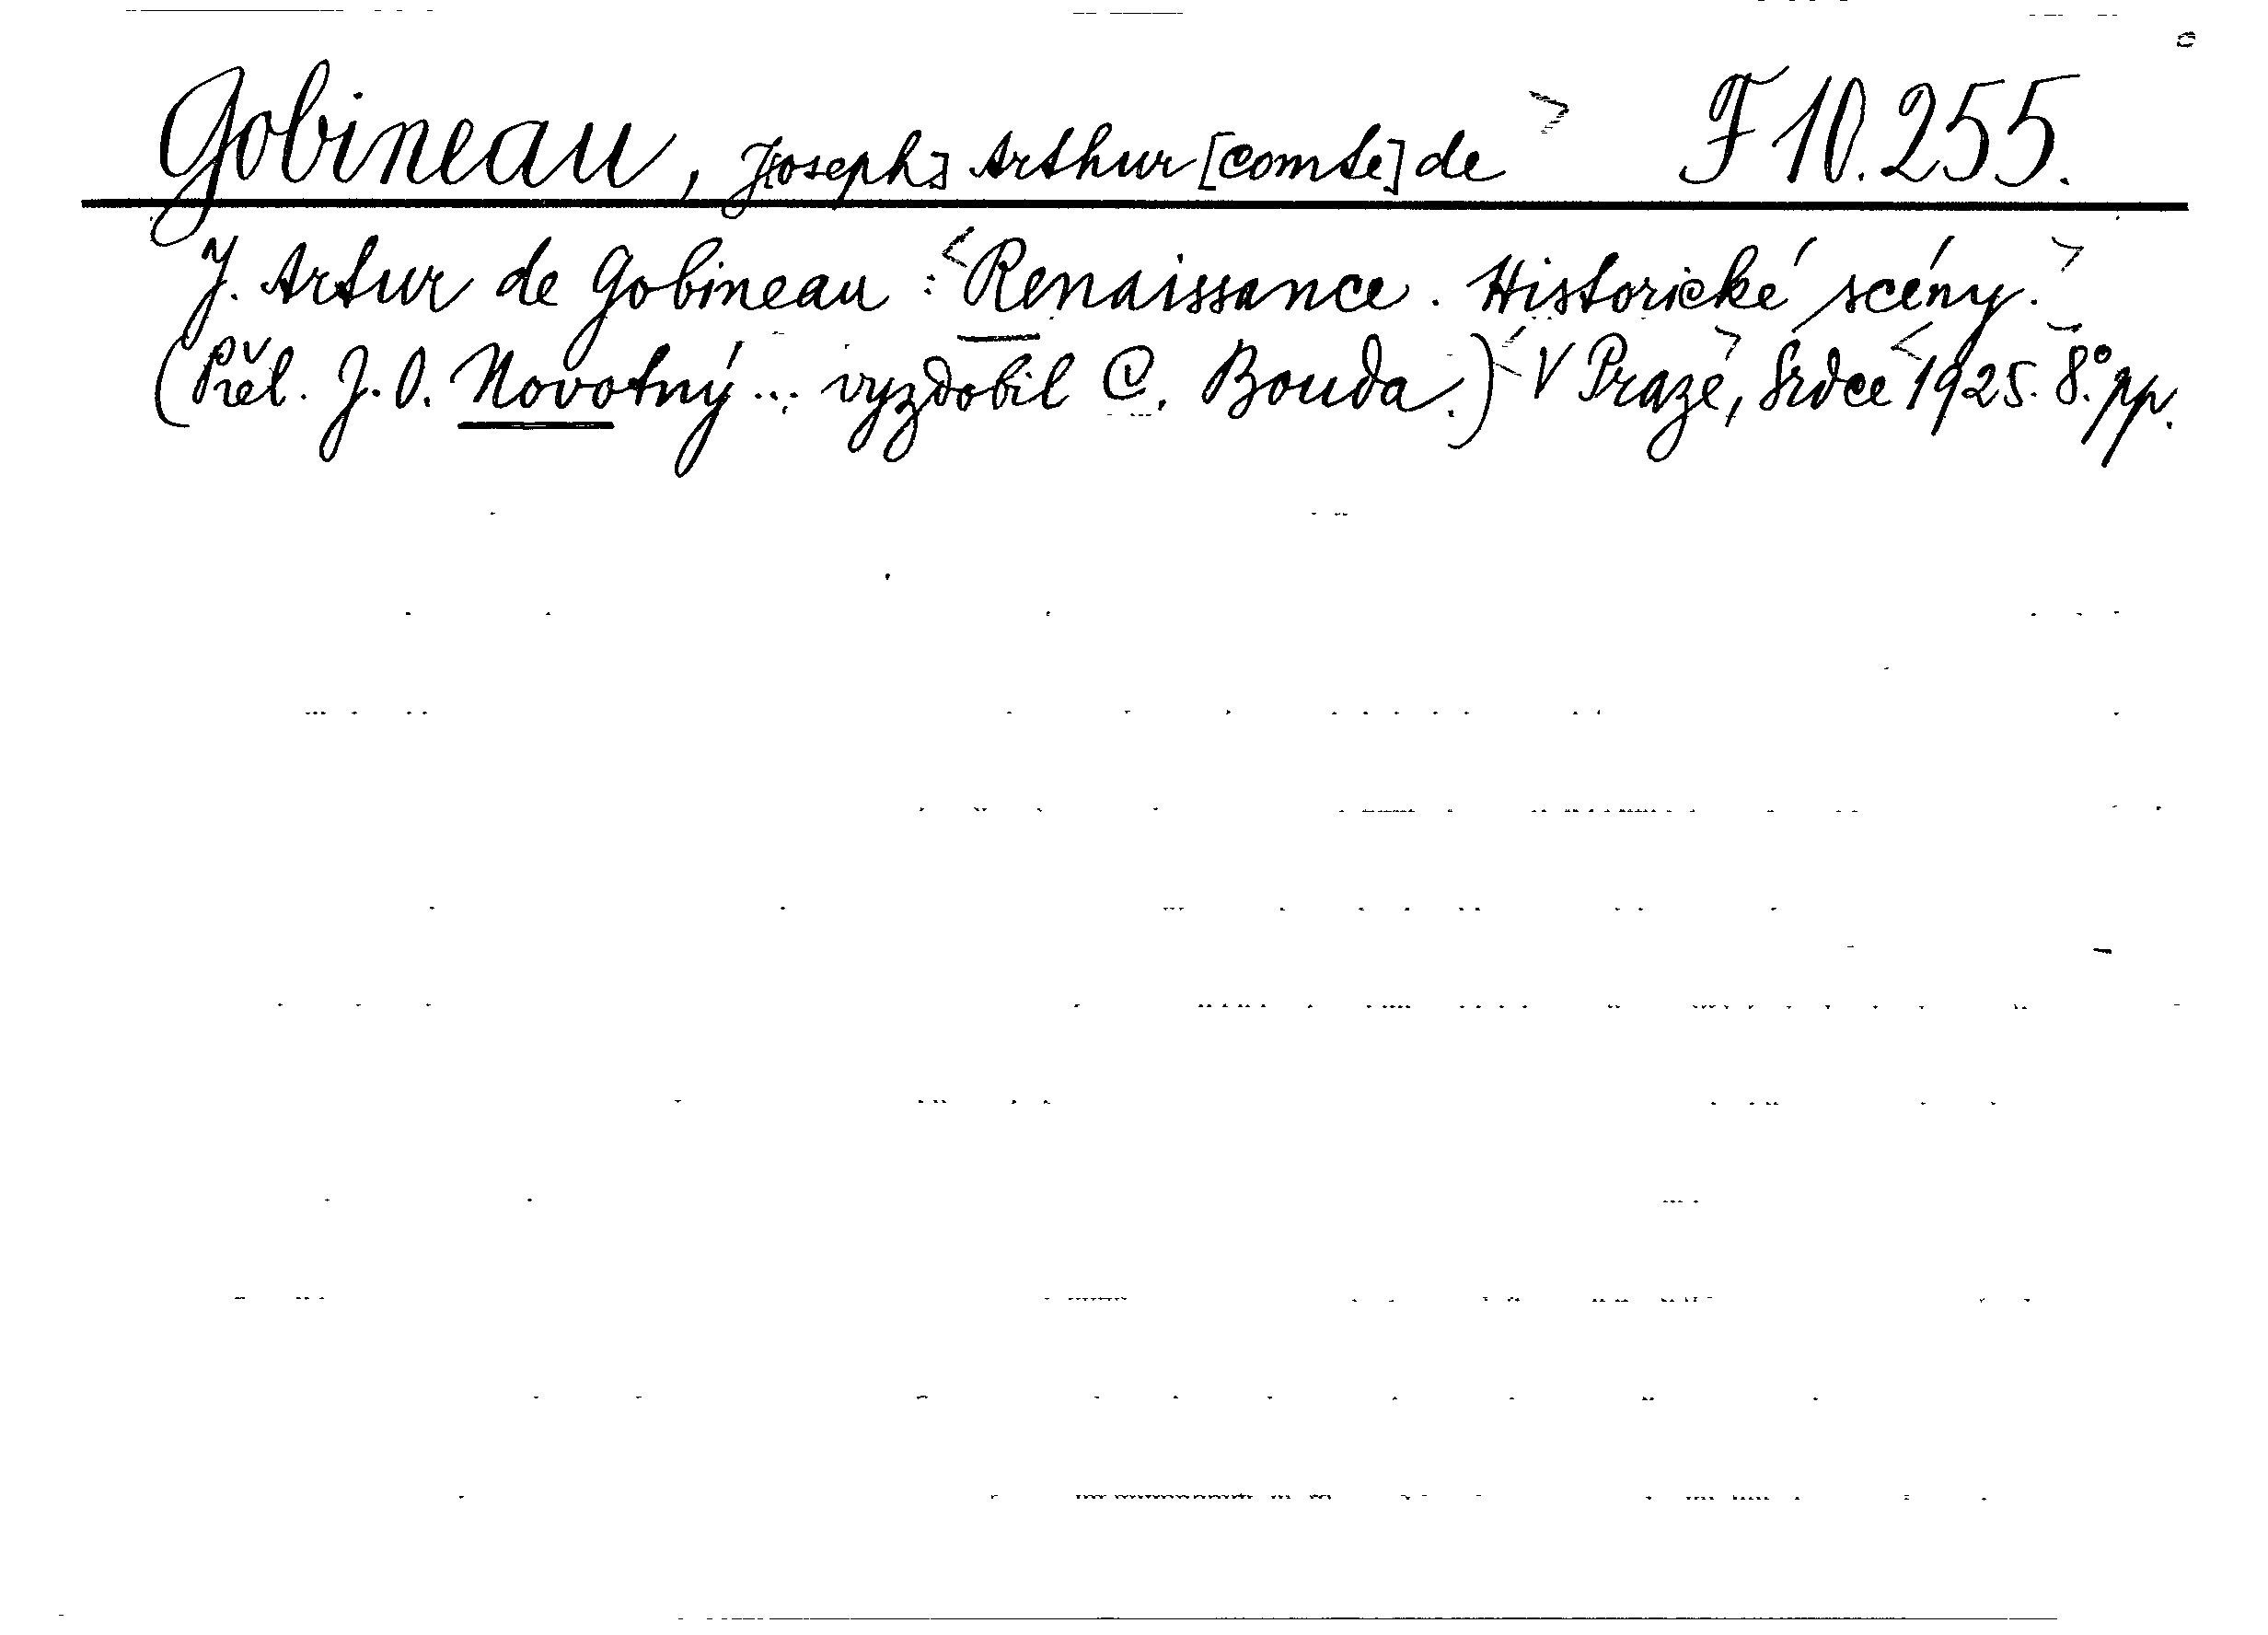 Gobineau, J[oseph] Arthur [comte] de > F 10.255.
J. Artur de Gobineau : <Renaissance. Historické scény.>
(Přel. J. O. Novotný ... vyzdobil C. Bouda.) < V Praze, > Srdce < 1925. 8°. pp.